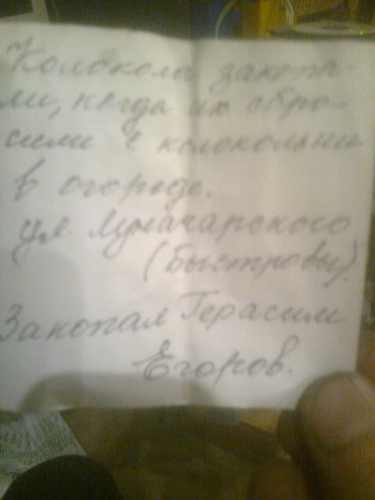 Колокола закопа-
ли, когда их сбро-
сили с колокольни
в огороде.
ул. Луначарского
(Быстровы).
Закопал Герасим
Егоров.